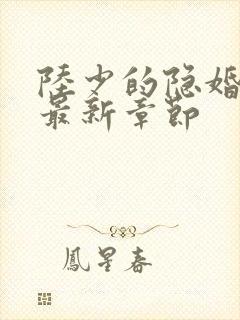 陸少的隐婚
最新章節
鳳星春